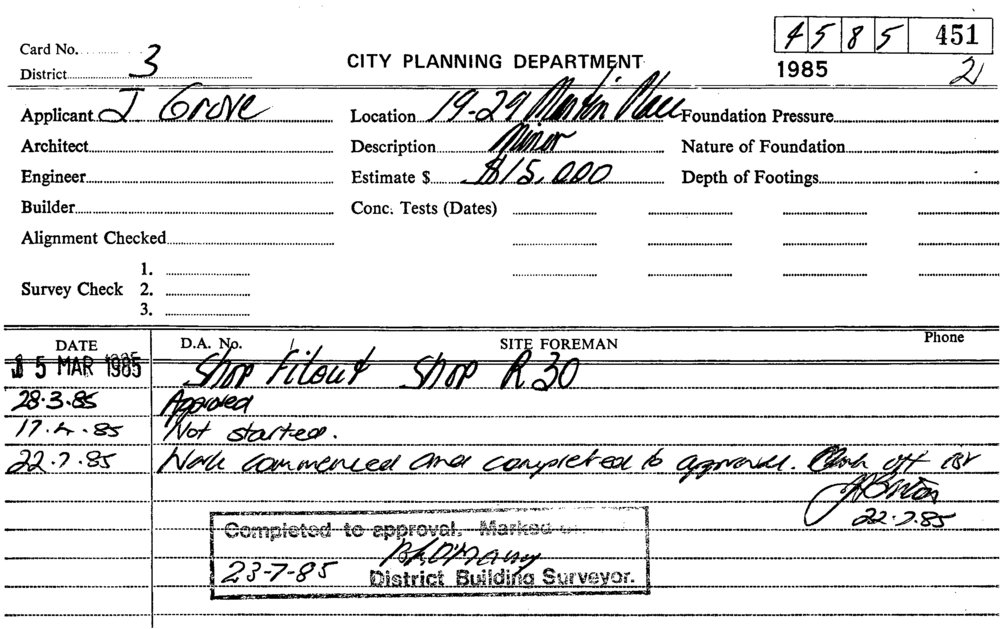 4 5 8 5 451
Card No.
CITY PLANNING DEPARTMENT
District 3
1985 2
Applicant J Grove Location 19-29 Martin Place Foundation Pressure
Architect Description Minor Nature of Foundation
Engineer Estimate $ $15,000 Depth of Footings
Builder Conc. Tests (Dates)
Alignment Checked
1.
Survey Check 2.
3.
DATE D.A. No. SITE FOREMAN Phone
15 MAR 1985 Shop Fitout Shop R30
28.3.85 Approved
17.4.85 Not started.
22.7.85 Work commenced and completed to approval. off
22.7.85
Completed to approval. Marked
23-7-85 District Building Surveyor.